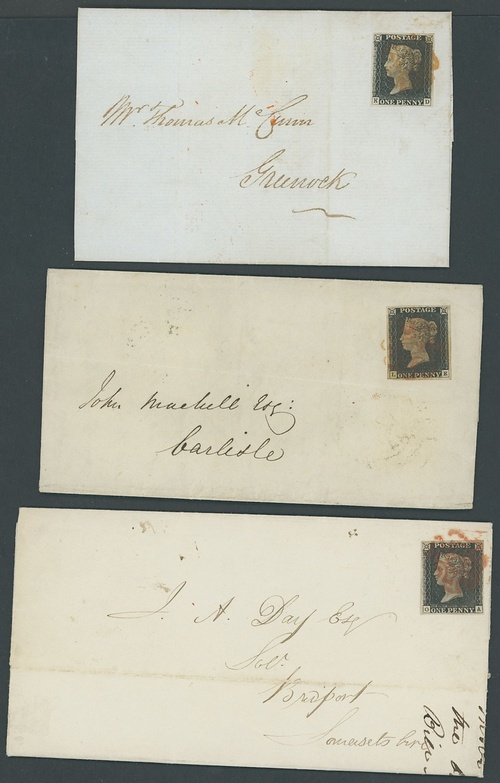 POSTAGE
K D
ONE PENNY
Mr Thomas McCunn
Greenock
POSTAGE
L E
ONE PENNY
John Machell Esq:
Carlisle
POSTAGE
O A
ONE PENNY
J. A. Day Esq
Solr
Bridport
Somersetshire
the